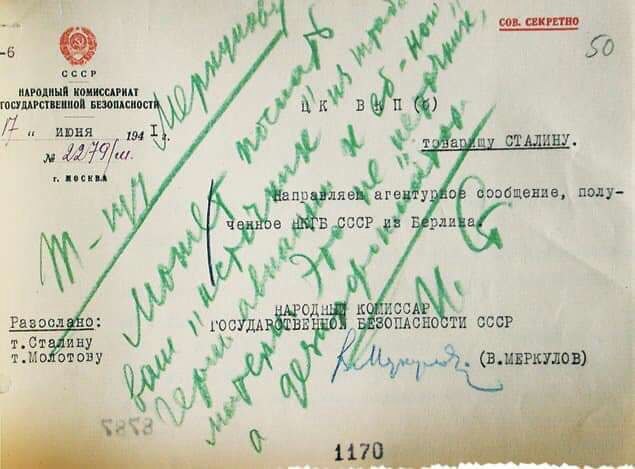 СОВ. СЕКРЕТНО
-6
50
СССР
НАРОДНЫЙ КОМИССАРИАТ
ГОСУДАРСТВЕННОЙ БЕЗОПАСНОСТИ
17 " июня 1941 г.
№ 2279/м.
г. МОСКВА
ЦК ВКП(б)
товарищу СТАЛИНУ.
Направляем агентурное сообщение, полу-
ченное НКГБ СССР из Берлина.
НАРОДНЫЙ КОМИССАР
ГОСУДАРСТВЕННОЙ БЕЗОПАСНОСТИ СССР
(В.МЕРКУЛОВ)
Разослано:
т.Сталину
т.Молотову
Т-щу Меркулову
Может послать
ваш "источник" из штаба
герм. авиации к еб-ной
матери. Это не "источник",
а дезинформатор.
И. Ст.
1170